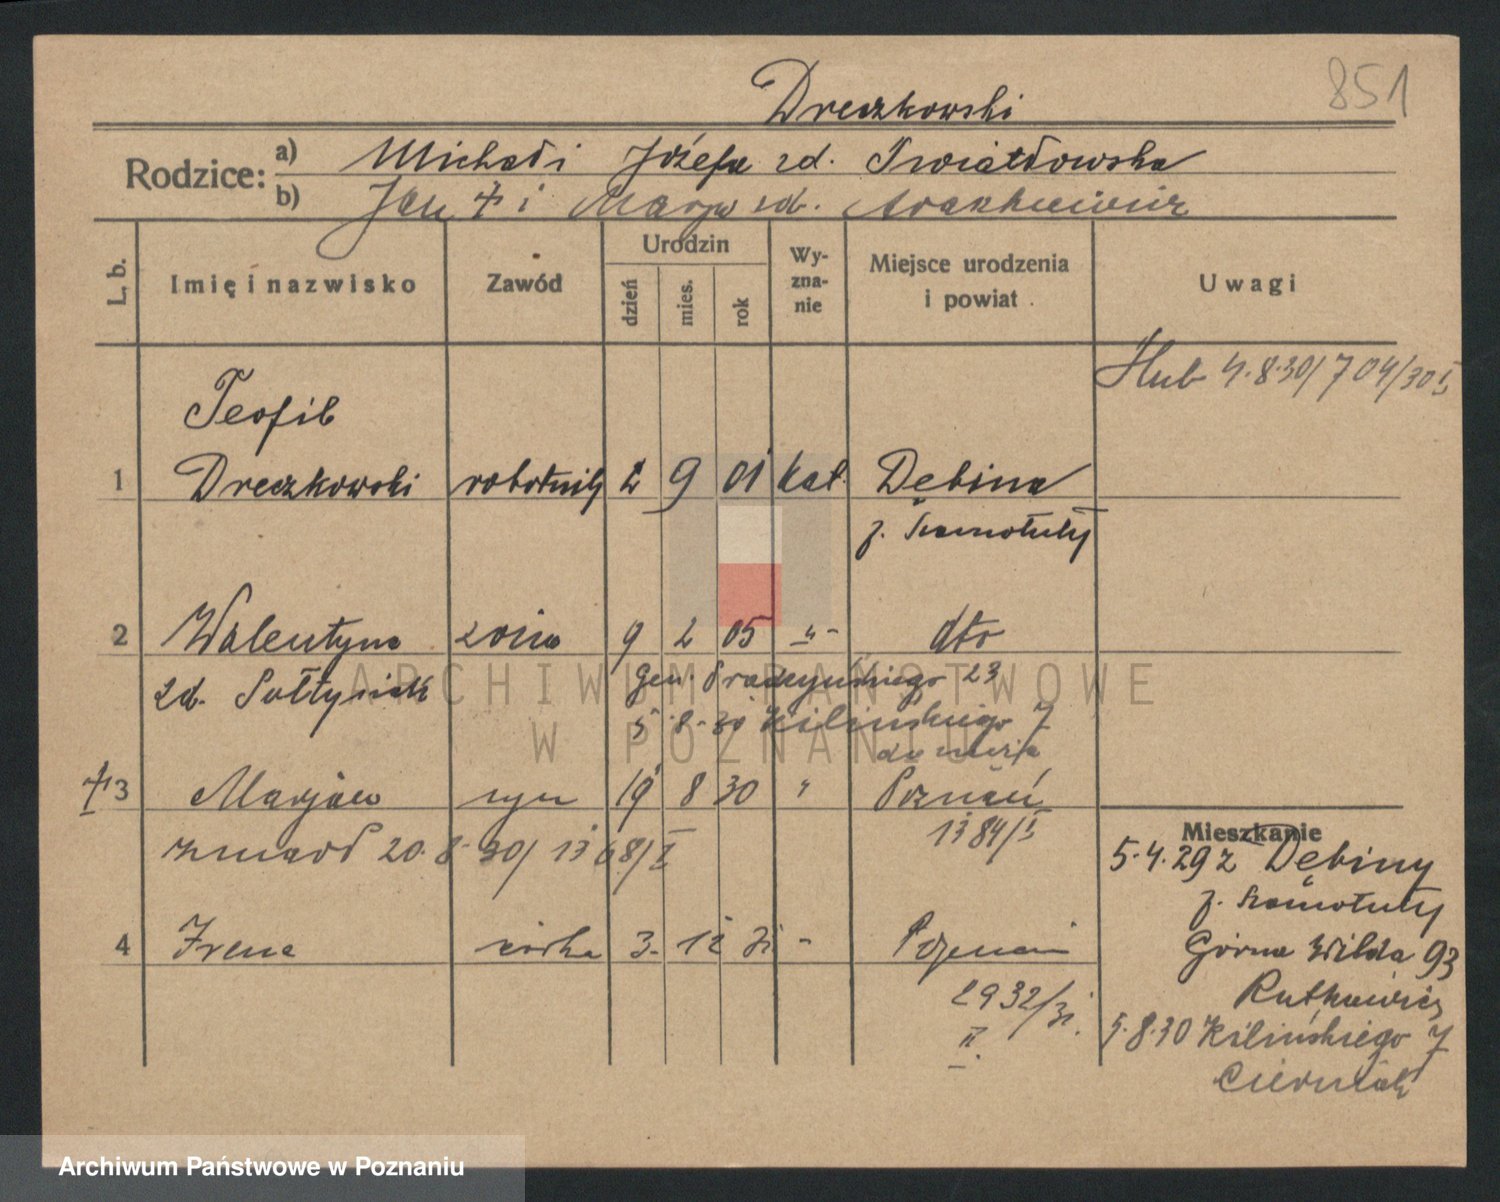 851
Dreczkowski
Rodzice: a) Michał i Józefa zd. Kwiatkowska
b) Jan + i Marja zd.
L. b. Imię i nazwisko Zawód Urodzin dzień mies. rok Wyznanie Miejsce urodzenia i powiat Uwagi
Hub 4.8.30/704/30 I
Teofil
1 Dreczkowski robotnik 2 9 01 kat. Dębina
p. Szamotuły
2 Walentyna żona 9 2 05 -"- dto
zd. Sołtysiak gen. Prądzyńskiego 23
5.8.30 Kilińskiego 7
+3 Marjan syn 19 8 30 " Poznań
zmarł 20.8.30/1368/I 1384/I
Mieszkanie
5.4.29 z Dębiny
p. Szamotuły
4 Irena córka 3. 12 31 - Poznań
Górna Wilda 93
2932/31. Rutkiewicz
II. 5.8.30 Kilińskiego 7
Cierniak
ARCHIWUM PAŃSTWOWE
W POZNANIU
Archiwum Państwowe w Poznaniu